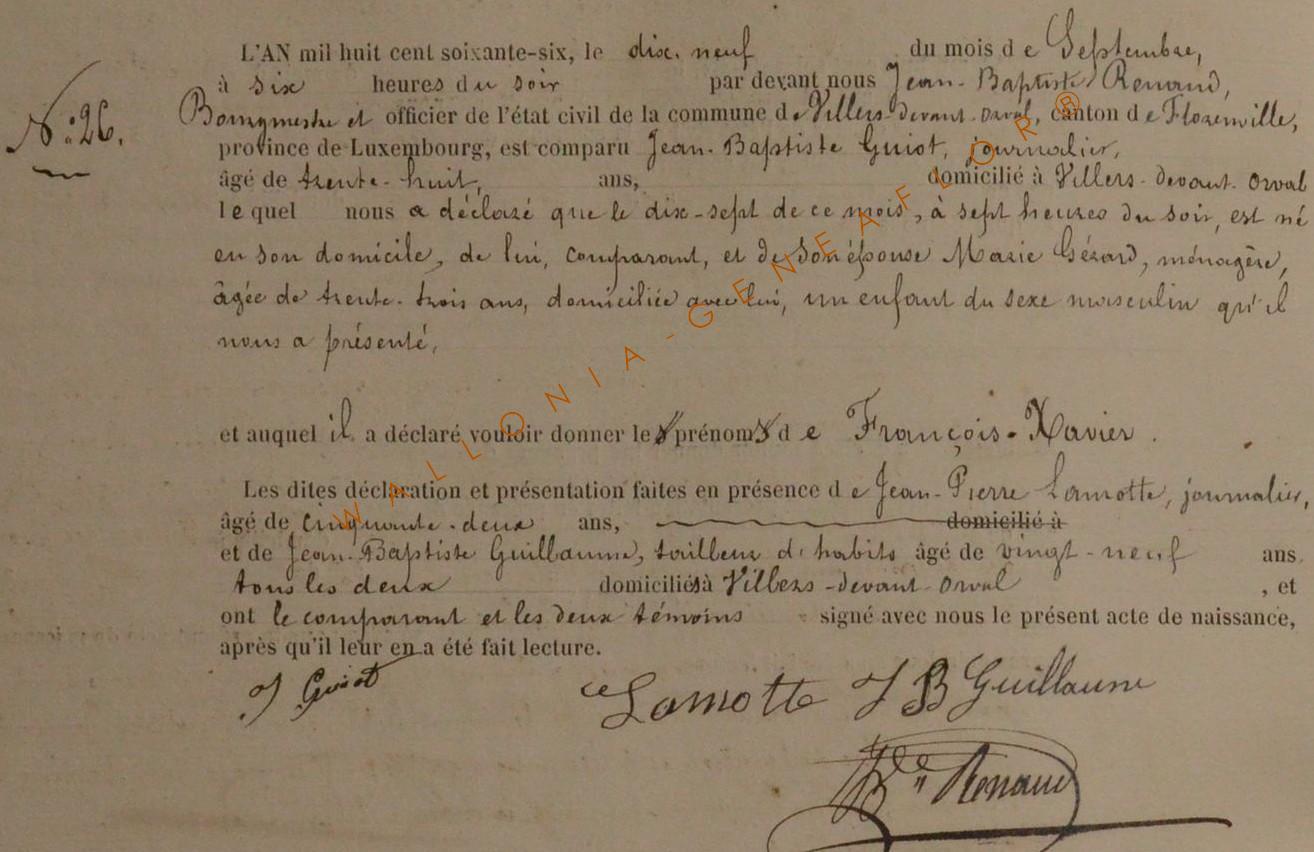 L'AN mil huit cent soixante-six, le dix-neuf du mois de Septembre,
à six heures du soir par devant nous Jean-Baptiste Renaud,
N.º 26.
Bourgmestre et officier de l'état civil de la commune de Villers-devant-orval, canton de Florenville,
province de Luxembourg, est comparu Jean-Baptiste Guiot, journalier,
âgé de trente-huit, ans, domicilié à Villers-devant-orval
lequel nous a déclaré que le dix-sept de ce mois, à sept heures du soir, est né
en son domicile, de lui, comparant, et de son épouse Marie Gérard, ménagère,
âgée de trente-trois ans, domiciliée avec lui, un enfant du sexe masculin qu'il
nous a présenté,
et auquel il a déclaré vouloir donner les prénoms de François-Xavier.
Les dites déclaration et présentation faites en présence de Jean-Pierre Lamotte, journalier,
âgé de cinquante-deux ans, domicilié à
et de Jean-Baptiste Guillaume, tailleur d'habits âgé de vingt-neuf ans
tous les deux domiciliés à Villers-devant-orval, et
ont le comparant et les deux témoins signé avec nous le présent acte de naissance,
après qu'il leur en a été fait lecture.
J Guiot Lamotte J B Guillaume
Renaud
WALLONIA-GENEAFLOR®